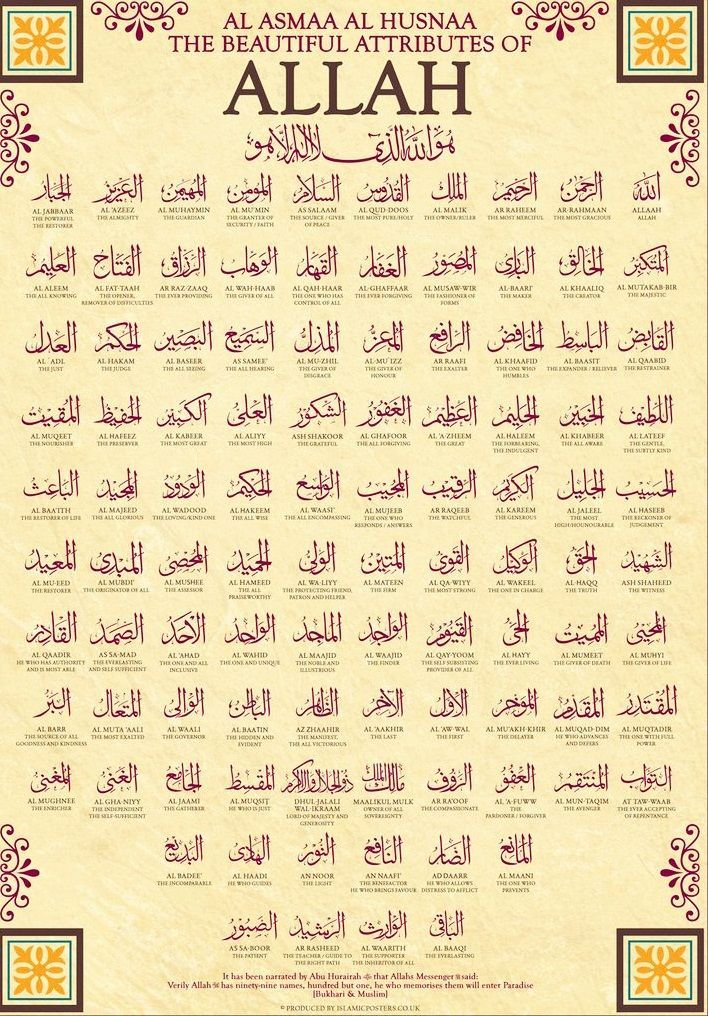 AL ASMAA AL HUSNAA
THE BEAUTIFUL ATTRIBUTES OF
ALLAH
هو الله الذي لا إله إلا هو
الله
ALLAAH
ALLAH
الرحمن
AR-RAHMAAN
THE MOST GRACIOUS
الرحيم
AR RAHEEM
THE MOST MERCIFUL
الملك
AL MALIK
THE OWNER/RULER
القدوس
AL QUD-DOOS
THE MOST PURE/HOLY
السلام
AS SALAAM
THE SOURCE / GIVER
OF PEACE
المومن
AL MU'MIN
THE GRANTER OF
SECURITY / FAITH
المهيمن
AL MUHAYMIN
THE GUARDIAN
العزيز
AL 'AZEEZ
THE ALMIGHTY
الجبار
AL JABBAAR
THE POWERFUL
THE RESTORER
المتكبر
AL MUTAKAB-BIR
THE MAJESTIC
الخالق
AL KHAALIQ
THE CREATOR
الباری
AL-BAARI'
THE MAKER
المصور
AL MUSAW-WIR
THE FASHIONER OF
FORMS
الغفار
AL-GHAFFAAR
THE EVER FORGIVING
القهار
AL QAH-HAAR
THE ONE WHO HAS
CONTROL OF ALL
الوهاب
AL WAH-HAAB
THE GIVER OF ALL
الرزاق
AR RAZ-ZAAQ
THE EVER PROVIDING
الفتاح
AL FAT-TAAH
THE OPENER,
REMOVER OF DIFFICULTIES
العليم
AL ALEEM
THE ALL KNOWING
القابض
AL QAABID
THE RESTRAINER
الباسط
AL BAASIT
THE EXPANDER / RELIEVER
الخافض
AL KHAAFID
THE ONE WHO
HUMBLES
الرافع
AR RAAFI
THE EXALTER
المعز
AL-MU'IZZ
THE GIVER OF
HONOUR
المذل
AL MU-ZHIL
THE GIVER OF
DISGRACE
السميع
AS SAMEE'
THE ALL HEARING
البصير
AL BASEER
THE ALL SEEING
الحكم
AL HAKAM
THE JUDGE
العدل
AL 'ADL
THE JUST
اللطيف
AL-LATEEF
THE GENTLE,
THE SUBTLY KIND
الخبير
AL KHABEER
THE ALL AWARE
الحليم
AL HALEEM
THE FORBEARING,
THE INDULGENT
العظيم
AL 'A-ZHEEM
THE GREAT
الغفور
AL GHAFOOR
THE ALL FORGIVING
الشكور
ASH SHAKOOR
THE GRATEFUL
العلى
AL ALIYY
THE MOST HIGH
الكبير
AL KABEER
THE MOST GREAT
الحفيظ
AL HAFEEZ
THE PRESERVER
المقيت
AL MUQEET
THE NOURISHER
الحسيب
AL HASEEB
THE RECKONER OF
JUDGEMENT
الجليل
AL JALEEL
THE MOST
HIGH/HOUNOURABLE
الكريم
AL KAREEM
THE GENEROUS
الرقيب
AR RAQEEB
THE WATCHFUL
المجيب
AL MUJEEB
THE ONE WHO
RESPONDS / ANSWERS
الواسع
AL WAASI'
THE ALL ENCOMPASSING
الحكيم
AL HAKEEM
THE ALL WISE
الودود
AL WADOOD
THE LOVING/KIND ONE
المجيد
AL MAJEED
THE ALL GLORIOUS
الباعث
AL BAA'ITH
THE RESTORER OF LIFE
الشهيد
ASH SHAHEED
THE WITNESS
الحق
AL-HAQQ
THE TRUTH
الوكيل
AL WAKEEL
THE ONE IN CHARGE
القوى
AL QA-WIYY
THE MOST STRONG
المتين
AL MATEEN
THE FIRM
الولى
AL WA-LIYY
THE PROTECTING FRIEND,
PATRON AND HELPER
الحميد
AL HAMEED
THE ALL
PRAISEWORTHY
المحصى
AL MUSHEE
THE ASSESSOR
المبدى
AL MUBDI'
THE ORIGINATOR OF ALL
المعيد
AL MU-EED
THE RESTORER
المحيى
AL MUHYI
THE GIVER OF LIFE
المميت
AL MUMEET
THE GIVER OF DEATH
الحى
AL HAYY
THE EVER LIVING
القيوم
AL QAY-YOOM
THE SELF SUBSISTING
PROVIDER OF ALL
الواجد
AL WAAJID
THE FINDER
الماجد
AL MAAJID
THE NOBLE AND
ILLUSTRIOUS
الواحد
AL WAHID
THE ONE AND UNIQUE
الأحد
AL 'AHAD
THE ONE AND ALL
INCLUSIVE
الصمد
AS SA-MAD
THE EVERLASTING
AND SELF SUFFICIENT
القادر
AL QAADIR
HE WHO HAS AUTHORITY
AND IS MOST ABLE
المقتدر
AL MUQTADIR
THE ONE WITH FULL
POWER
المقدم
AL MUQAD-DIM
HE WHO ADVANCES
AND DEFERS
الموخر
AL MU'AKH-KHIR
THE DELAYER
الأول
AL 'AW-WAL
THE FIRST
الآخر
AL 'AAKHIR
THE LAST
الظاهر
AZ ZHAAHIR
THE MANIFEST,
THE ALL VICTORIOUS
الباطن
AL BAATIN
THE HIDDEN AND
EVIDENT
الوالى
AL WAALI
THE GOVERNOR
المتعال
AL MUTA 'AALI
THE MOST EXALTED
البر
AL BARR
THE SOURCE OF ALL
GOODNESS AND KINDNESS
التواب
AT TAW-WAAB
THE EVER ACCEPTING
OF REPENTANCE
المنتقم
AL MUN-TAQIM
THE AVENGER
العفو
AL 'A-FUWW
THE
PARDONER / FORGIVER
الرؤف
AR RA'OOF
THE COMPASSIONATE
مالك الملك
MAALIKUL MULK
OWNER OF ALL
SOVEREIGNTY
ذو الجلال والاكرام
DHUL-JALALI
WAL-IKRAAM
LORD OF MAJESTY AND
GENEROSITY
المقسط
AL MUQSIT
HE WHO IS JUST
الجامع
AL JAAMI
THE GATHERER
الغنى
AL GHA-NIYY
THE INDEPENDENT
THE SELF-SUFFICIENT
المغنى
AL MUGHNEE
THE ENRICHER
المانع
AL MAANI
THE ONE WHO
PREVENTS
الضار
AD DAARR
HE WHO ALLOWS
DISTRESS TO AFFLICT
النافع
AN NAAFI'
THE BENEFACTOR
HE WHO BRINGS FAVOUR
النور
AN NOOR
THE LIGHT
الهادى
AL HAADI
HE WHO GUIDES
البديع
AL BADEE'
THE INCOMPARABLE
الباقى
AL BAAQI
THE EVERLASTING
الوارث
AL WAARITH
THE SUPPORTER
THE INHERITOR OF ALL
الرشيد
AR RASHEED
THE TEACHER / GUIDE TO
THE RIGHT PATH
الصبور
AS SA-BOOR
THE PATIENT
It has been narrated by Abu Hurairah that Allahs Messenger ﷺ said:
Verily Allah has ninety-nine names, hundred but one, he who memorises them will enter Paradise
[Bukhari & Muslim]
© PRODUCED BY ISLAMICPOSTERS.CO.UK